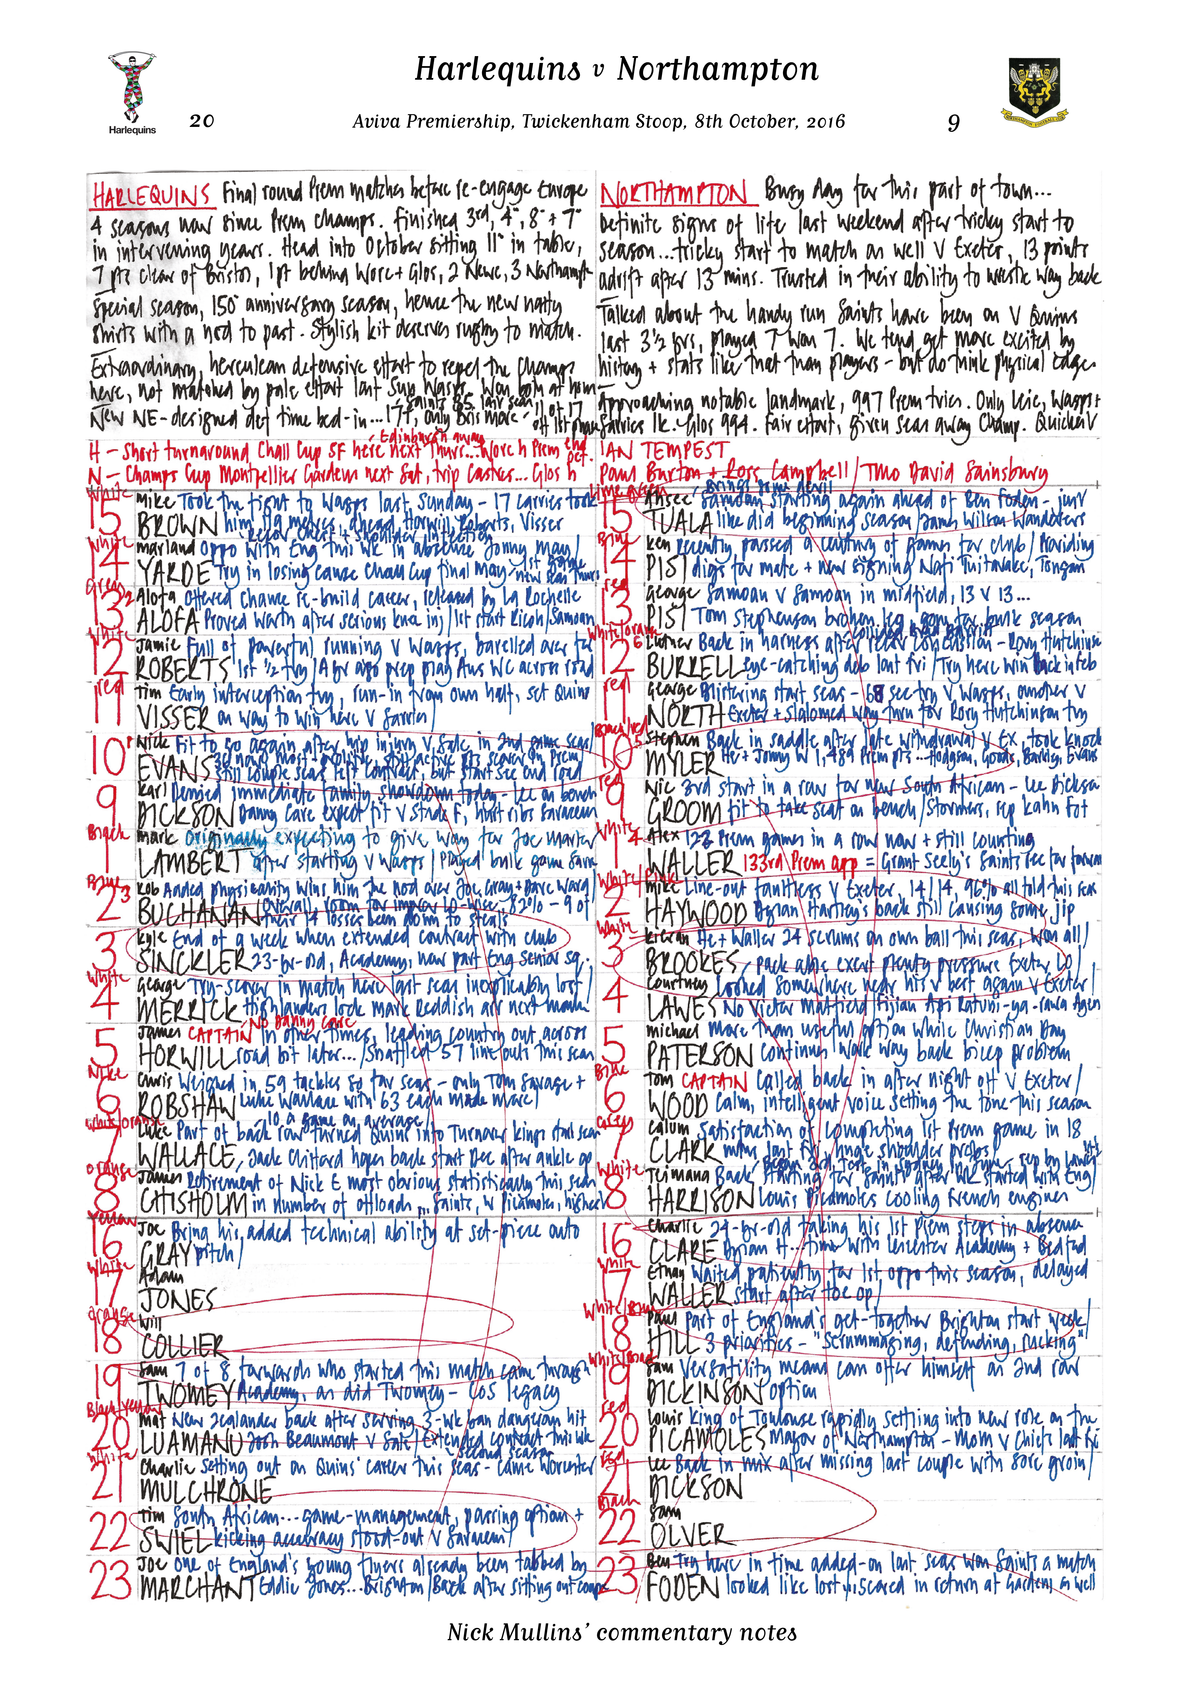 Harlequins v Northampton
Harlequins
20
Aviva Premiership, Twickenham Stoop, 8th October, 2016
9
HARLEQUINS Final round Prem matches before re-engage Europe
4 seasons now since Prem champs. Finished 3rd, 4th, 8th + 7th
in intervening years. Head into October sitting 11th in table,
7 pts clear of Bristol, 1pt behind Worc + Glos, 2 Newc, 3 Northampt
Special season, 150th anniversary season, hence the new natty
shirts with a nod to past. Stylish kit deserves rugby to match.
Extraordinary, herculean defensive effort to repel the champs
here, not matched by pale effort last Sun Wasps. Won both at home
Saints 85, lair scen
New NE-designed def time bed-in... 17t, only Bris more - 11 of 17 off 1st phase
NORTHAMPTON Busy day for this part of town...
Definite signs of life last weekend after tricky start to
season... tricky start to match as well v Exeter, 13 points
adrift after 13 mins. Trusted in their ability to wrestle way back
Talked about the handy run Saints have been on v Quins
last 3½ yrs, played 7 won 7. We tend get more excited by
history + stats like that than players - but do think physical edge
Approaching notable landmark, 997 Prem tries. Only Leic, Wasps +
Sarries 1k. Glos 994. Fair effort, given seas away Champ. Quicker v
Edinburgh away
H - Short turnaround Chall Cup SF here next Thurs... Worc h Prem end Oct
N - Champs Cup Montpellier Gardens next Sat, trip Castres... Glos h
IAN TEMPEST
Paul Burton + Ross Campbell / TMO David Sainsbury
White
15 Mike Took the fight to Wasps last Sunday - 17 carries took
BROWN him 119 metres, ahead Horwill, Roberts, Visser
recov chest + shoulder infection
White
14 Marland Oppo with Eng this wk in absence Jonny May /
YARDE Try in losing cause Chall Cup final May / 1st game new seas Thurs
Green
13 Alofa Offered chance re-build career, released by La Rochelle
ALOFA Proved worth after serious knee inj / 1st start Ricoh / Samoan
White
12 Jamie Full of powerful running v Wasps, barrelled over for
ROBERTS 1st ½ try / A yr ago prep play Aus WC across road
red
11 Tim Early interception try, run-in from own half, set Quins
VISSER on way to win here v Sarries /
10 Nick Fit to go again after hip injury v Sale in 2nd game seas /
EVANS
still couple seas left contract, but start see end road
9 Karl Denied immediate family showdown today - Lee on bench
DICKSON Danny Care expect fit v Stade F, hurt ribs Saracens
Black
1 Mark Originally expecting to give way for Joe Marler
LAMBERT after starting v Wasps / Played bulk game Sara
Blue 3
2 Rob Added physicality wins him the nod over Joe Gray + Dave Ward /
BUCHANAN Overall, room for improv lo-wise, 82% - 9 of
their 14 losses been down to steals
3 Kyle End of a week when extended contract with club
SINCKLER 23-yr-old, Academy, now part Eng Senior sq.
White
4 George Try-scorer in match here last seas inexplicably lost /
MERRICK Highlanders lock Mark Reddish arr next month
No Danny Care
5 James CAPTAIN In other times, leading country out across
HORWILL road bit later... / Snaffled 57 lineouts this seas
Nike
6 Chris Weighed in 59 tackles so far seas - only Tom Savage +
ROBSHAW Luke Wallace with 63 each made more /
10 a game on average
White/orange
7 Luke Part of back row turned Quins into Turnover Kings start seas
WALLACE, Jack Clifford hopes back start Dec after ankle op
orange
8 James Retirement of Nick E most obvious statistically this seas
CHISHOLM in number of offloads... Saints, N Picamole, higher
Yellow
16 Joe Bring his added technical ability at set-piece auto
GRAY pitch /
White
17 Adam
JONES
orange
18 Will
COLLIER
19 Sam 7 of 8 forwards who started this match came through
TWOMEY Academy, as did Twomey - CoS legacy
Black/yellow
20 Mat New Zealander back after serving 3-wk ban dangerous hit
LUAMANU Josh Beaumont v Sale / Extended contract this wk
second season
White
21 Charlie Setting out on Quins' career this seas - came Worcester
MULCHRONE
22 Tim South African... game-management, passing option +
SWIEL kicking accuracy stood-out v Saracens /
23 Joe One of England's young tyers already been tabbed by
MARCHANT Eddie Jones... Brighton / Back after sitting out coupe
Lime green
15 Ahsee Samoan starting again ahead of Ben Foden - just
TUALA like did beginning season / Wilson Wanderers
Blue
14 Ken Recently passed a century of games for club / Providing
PISI digs for mate + new signing Nafi Tuitavake, Tongan
red
13 George Samoan v Samoan in midfield, 13 v 13...
PISI Tom Stephenson broken leg, gone for bulk season
White/orange
12 Luther Back in harness after concussion - Rory Hutchinson
BURRELL eye-catching deb last Fri / Try here win back in Feb
red
11 George Blistering start seas - 68 sec try v Wasps, another v
NORTH Exeter + slalomed way thru for Rory Hutchinson try
Black/red
10 Stephen Back in saddle after late withdrawal v Ex, took knock
MYLER He + Jonny W 1,489 Prem pts... Hodgson, Goode, Barkley, Evans
red
9 Nic 3rd start in a row for new South African - Lee Dickson
GROOM fit to take seat on bench / Stormers, rep Kahn Fot
White
1 Alex 122 Prem games in a row now + still counting
WALLER 133rd Prem app = Grant Seely's Saints rec for forward
White/Pink
2 Mike Line-out faultless v Exeter, 14/14, 96% all told this seas
HAYWOOD Dylan Hartley's back still causing some jip
White
3 Kieran He + Waller 24 scrums on own ball this seas, won all /
BROOKES, Pack able exert plenty pressure Exeter LO /
4 Courtney Looked somewhere near his v best again v Exeter /
LAWES No Victor Matfield / Fijian Api Ratuni-ya-rawa Agen
5 Michael More than useful option while Christian Day
PATERSON continues work way back bicep problem
Blue
6 Tom CAPTAIN Called back in after night off v Exeter /
WOOD Calm, intelligent voice setting the tone this season
Grey
7 Calum Satisfaction of completing 1st Prem game in 18
CLARK mths last Fri,ange shoulder probs /
Began 3rd Test in Sydney in June, rep by Lawes
White
8 Teimana Back starting for Saints after wk started with Eng /
HARRISON Louis Picamoles cooling French engines
16 Charlie 24-yr-old taking his 1st Prem steps in absence
CLARE Dylan H... time with Leicester Academy + Bedford
White
17 Ethan Waited patiently for 1st oppo this season, delayed
WALLER start after toe op /
White/Blue
18 Paul Part of England's get-together Brighton start week /
HILL 3 priorities - "Scrummaging, defending, rucking"
19 Sam Versatility means can offer himself as 2nd row
DICKINSON option
red
20 Louis King of Toulouse rapidly settling into new role as the
PICAMOLES Mayor of Northampton - MoM v Chiefs last Fri
Red
21 Lee Back in mix after missing last couple with sore groin /
DICKSON
Black
22 Sam
OLVER
23 Ben Try here in time added-on last seas won Saints a match
FODEN looked like lost, / Scored in return at Gardens as well
Nick Mullins' commentary notes